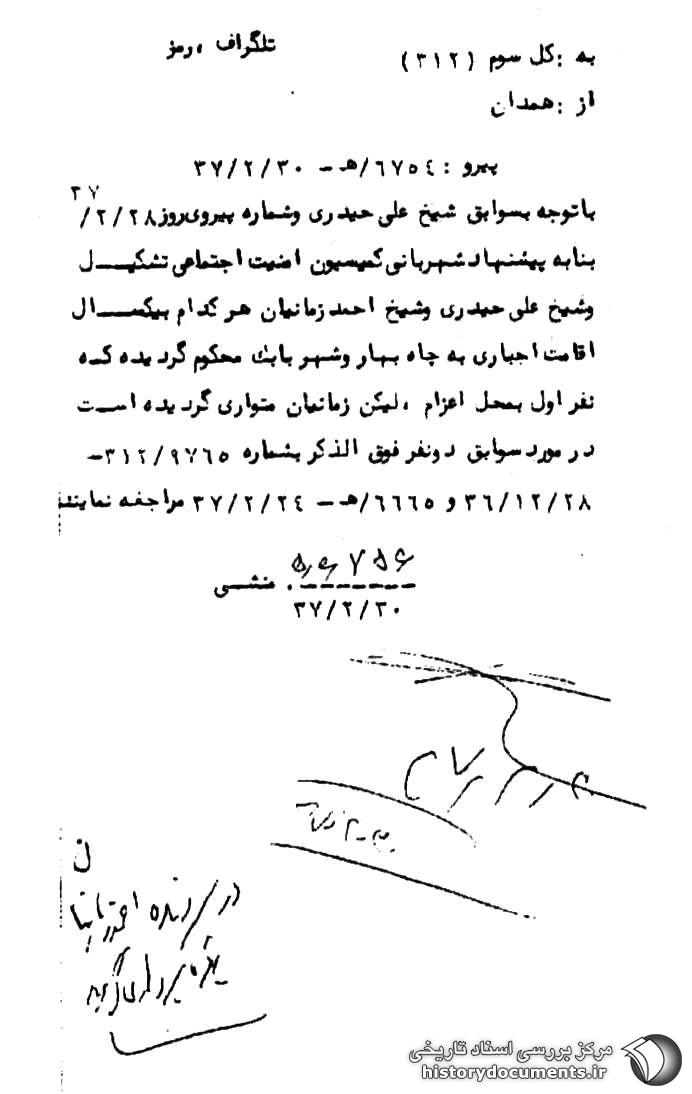 تلگراف ، رمز
به : کل سوم (۳۱۲)
از : همدان
پیرو : ۶۷۵۴/هـ – ۳۷/۲/۳۰
۳۷
باتوجه بسوابق شیخ علی حیدری وشماره پیروی روز ۲/۲۸/
بنابه پیشنهاد شهربانی کمیسیون امنیت اجتماعی تشکیل
وشیخ علی حیدری وشیخ احمد زمانیان هر کدام بیکسال
اقامت اجباری به چاه بهار وشهر بابک محکوم گردیده که
نفر اول بمحل اعزام ، لیکن زمانیان متواری گردیده است
در مورد سوابق دونفر فوق الذکر بشماره ۳۱۲/۹۷۶۵–
۳۶/۱۲/۲۸ و ۶۶۶۵/هـ – ۳۷/۲/۲۴ مراجعه نمایند
منشی
۳۷/۲/۳۰
در پرونده
مرکز بررسی اسناد تاریخی
historydocuments.ir